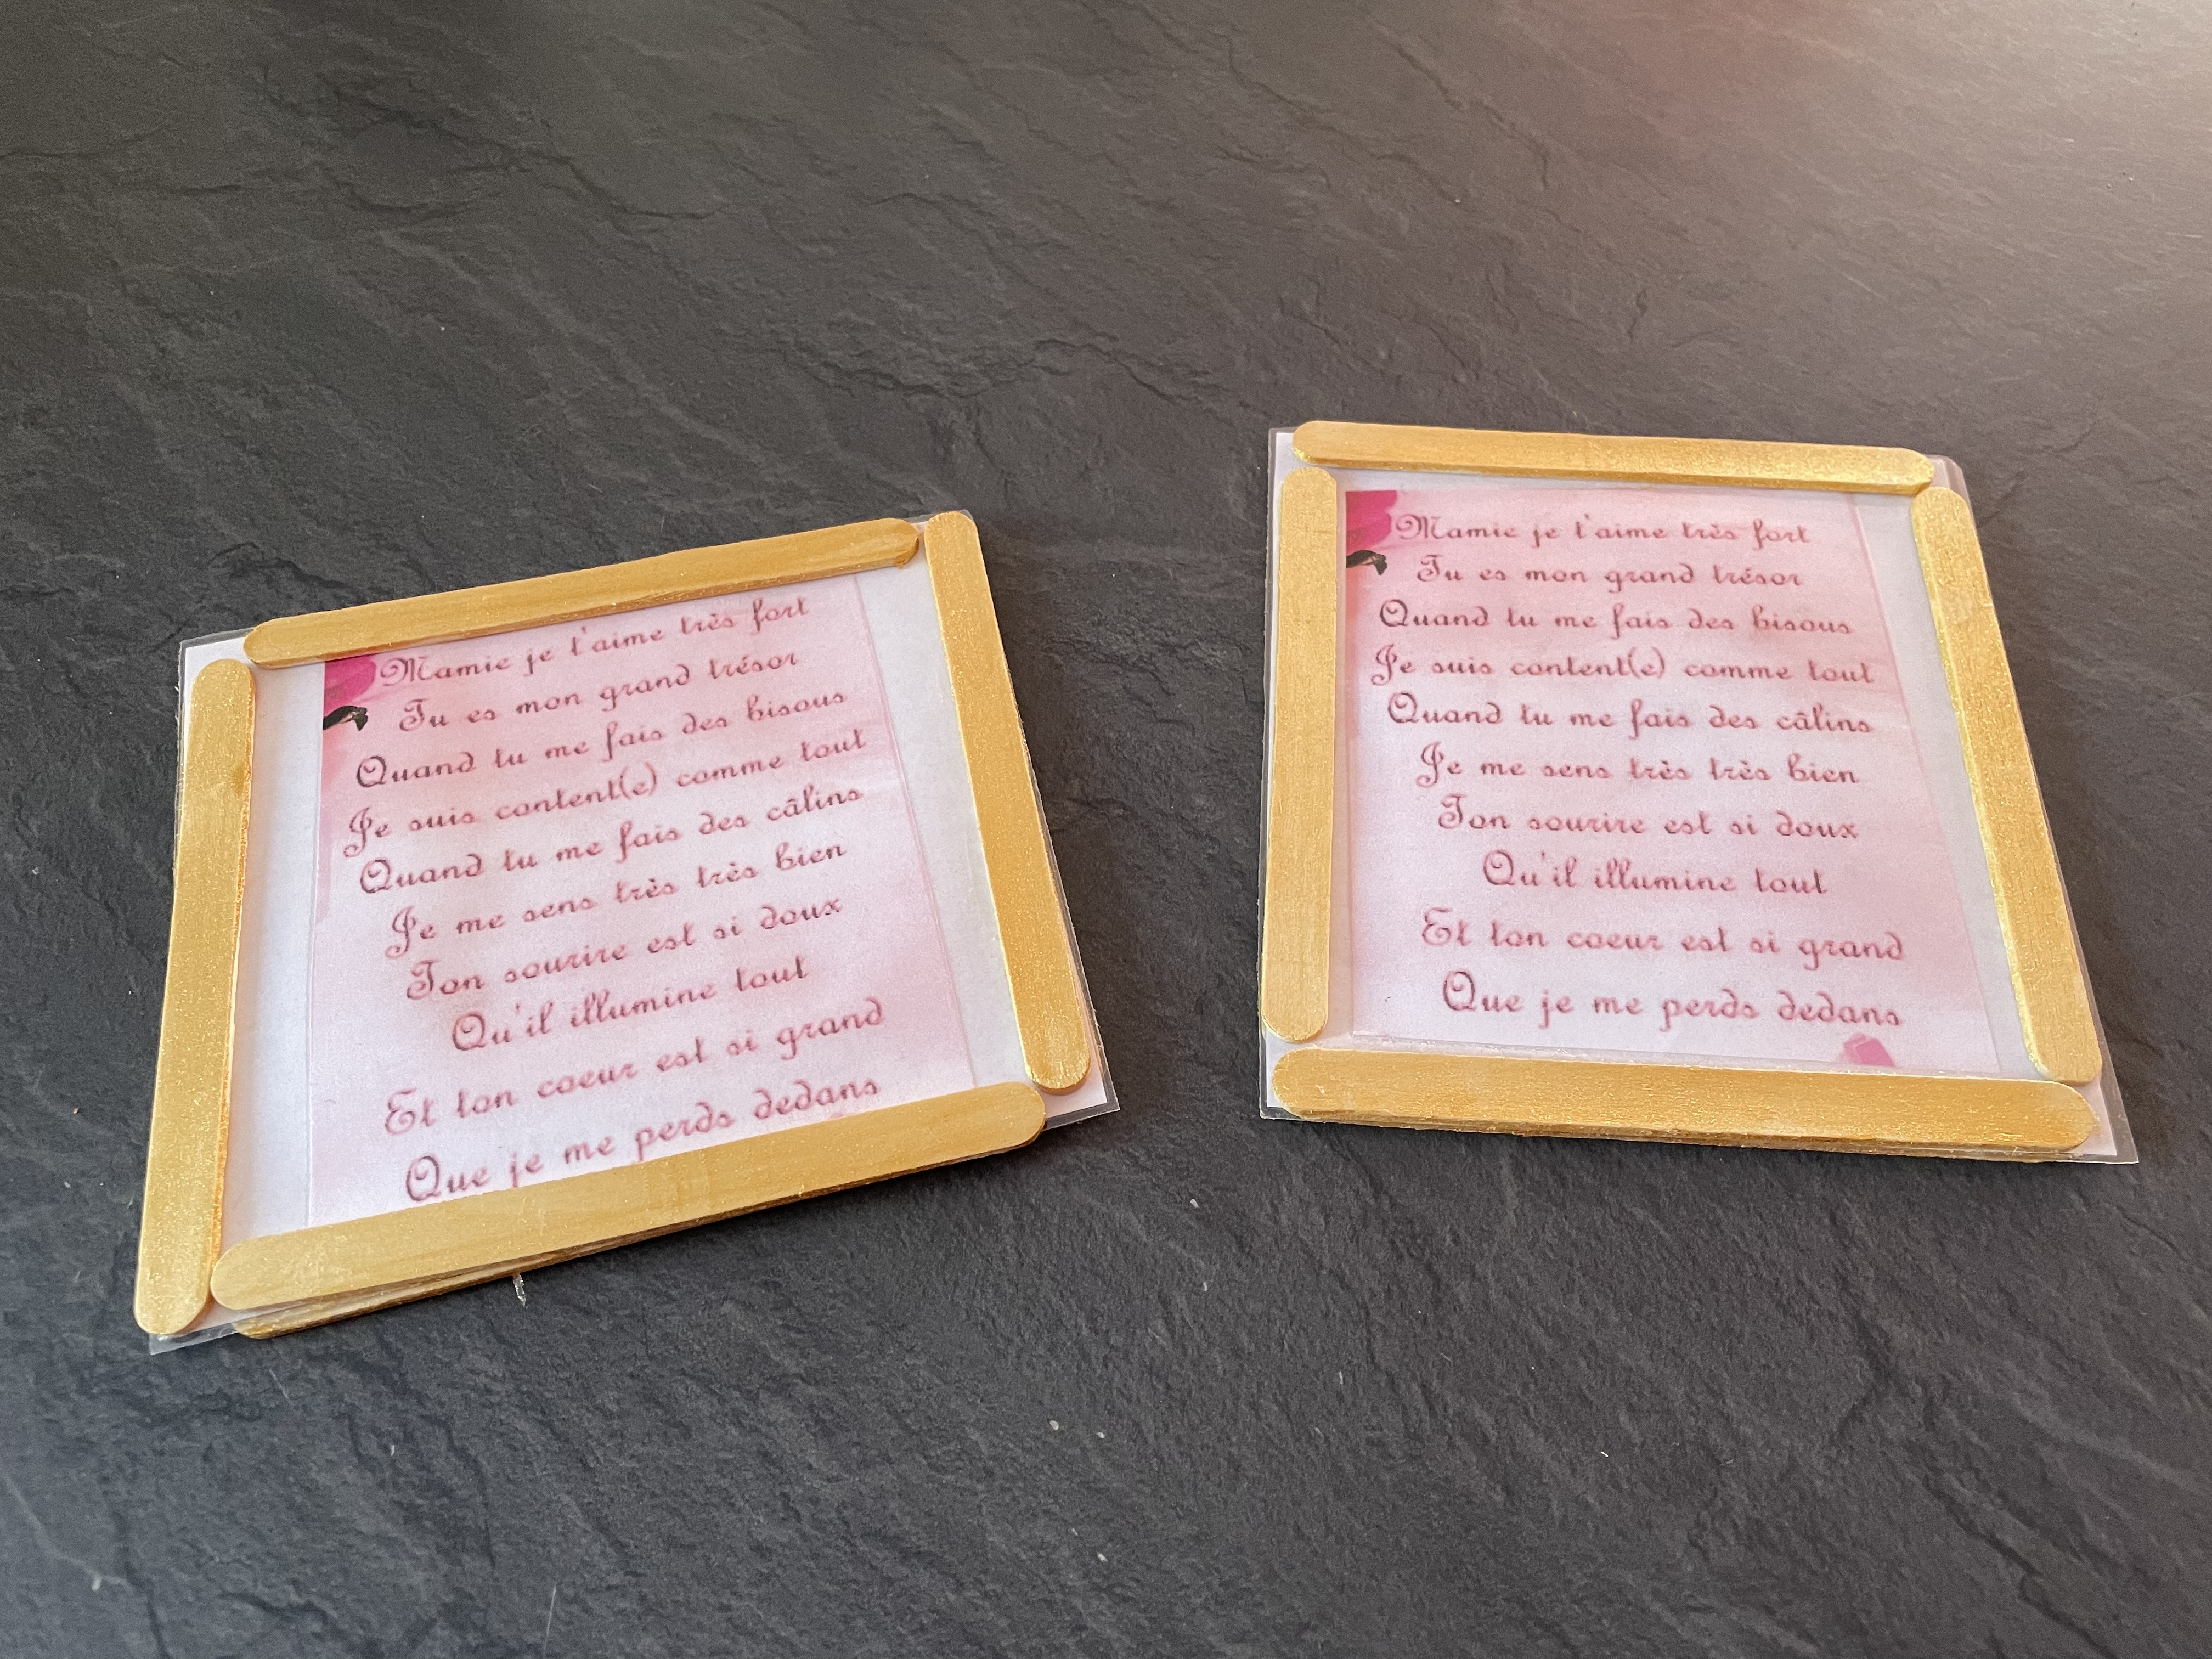 Mamie je t'aime très fort
Tu es mon grand trésor
Quand tu me fais des bisous
Je suis content(e) comme tout
Quand tu me fais des câlins
Je me sens très très bien
Ton sourire est si doux
Qu'il illumine tout
Et ton coeur est si grand
Que je me perds dedans
Mamie je t'aime très fort
Tu es mon grand trésor
Quand tu me fais des bisous
Je suis content(e) comme tout
Quand tu me fais des câlins
Je me sens très très bien
Ton sourire est si doux
Qu'il illumine tout
Et ton coeur est si grand
Que je me perds dedans